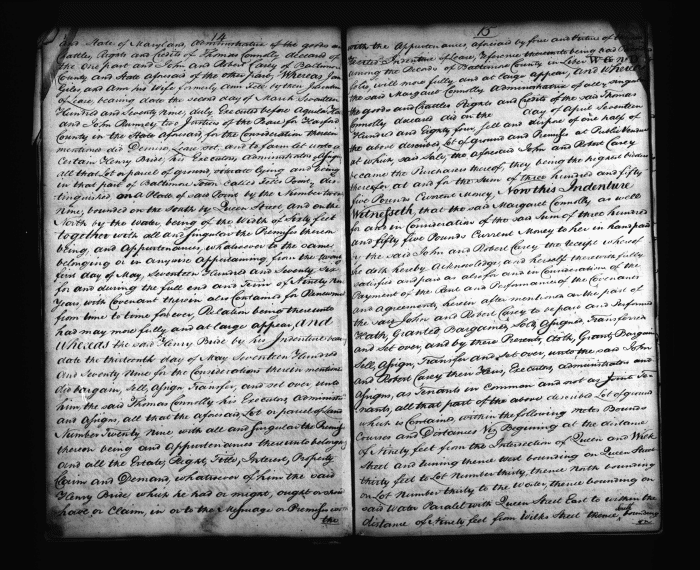 14
and State of Maryland, Administratrix of the goods and
Chattles, Rights and Credits of Thomas Connolly deceased of
the One part and John and Robert Carey of Baltimore
County and State aforesaid of the other part, Whereas
Giles, and Ann his Wife formerly Ann Fell by their Indenture
of Lease, bearing date the second day of March Seventeen
Hundred and Seventy Nine, duly Executed before Aquila Hall
and John Rumsey two Justices of the Peace for Harford
County in the State aforesaid, for the Consideration therein
mentioned did Demise, Lease set, and to farm let unto a
Certain Henry Bride, his Executors, Administrators, Assigns
all that Lot or parcel of ground, situate lying and being
in that part of Baltimore Town called Fells Point, dis-
tinguished on a Plat of said Point by the Number twenty
Nine, bounded on the South by Queen Street and on the
North by the water, being of the Width of Sixty feet
together with all and singular the Premises therein
being, and Appurtenances, whatsoever to the same
belonging or in anywise Appertaining, from the twenty
first day of May, Seventeen Hundred and Seventy Six
for and during the full end and Term of Ninety Nine
Years, with Covenant therein also Contained for Renewment
from time to time for ever, Relation being thereunto
had may more fully and at large appear, And
Whereas the said Henry Bride by his Indenture
date the thirteenth day of May Seventeen Hundred
and Seventy Nine for the Considerations therein mentioned
did bargain, Sell, Assign, Transfer, and set over unto
him, the said Thomas Connolly his Executors, Administrators
and Assigns, all that the aforesaid Lot or parcel of Land
Number Twenty Nine with all and Singular the Premises
therein being and appurtenances thereunto belonging
and all the Estate, Right, Title, Interest, Property
Claim and Demand, whatsoever of him the said
Henry Bride, which he had or might, ought or
have or Claim, in or to the Messuage or Premises
the
15
with the Appurtenances, aforesaid by force and Virtue of
recited Indenture of Lease, Reference thereunto being had
among the Records of Baltimore County in Liber W G No
folio, will more fully and at large appear, And Whereas
the said Margaret Connolly Administratrix of all singular
the goods and Chattles Rights and Credits of the said Thomas
Connolly deceased did on the day of April Seventeen
Hundred and Eighty four, sell and dispose of one half of
the above described Lot of ground and Premises at Public Vendue
at which said Sale, the aforesaid John and Robert Carey
became the Purchasers thereof, they being the highest bidder
therefor at and for the Sum of three hundred and fifty
five Pounds Current Money, Now this Indenture
Witnesseth, that the said Margaret Connolly as well
for and in Consideration of the said Sum of three hundred
and fifty five Pounds Current Money to her in hand paid
by the said John and Robert Carey the receipt whereof
he doth hereby Acknowledge, and herself therewith fully
satisfied and paid as also for and in Consideration of the
Payment of the Rent and Performance of the Covenant
and Agreements, herein after mentioned on the part of
the said John and Robert Carey to be paid and Performed
Hath, Granted Bargained, Sold, Assigned, Transferred
and set over, and by these Presents, doth, Grant, Bargain
Sell, Assign, Transfer and Set over, unto the said John
and Robert Carey their Heirs, Executors, administrators and
Assigns, as Tenants in Common and not as Joint Te-
nants, all that part of the above described Lot of ground
which is Contained, within the following Metes Bounds
Courses and Distances, Viz. Beginning at the distance
of Ninety feet from the Intersection of Queen and Wilk
Street and running thence West bounding on Queen Street
thirty feet to Lot Number thirty, thence North bounding
on Lot Number thirty to the Water, thence bounding on
said Water Paralel with Queen Street East to within the
distance of Ninety feet from Wilks Street thence South bounding